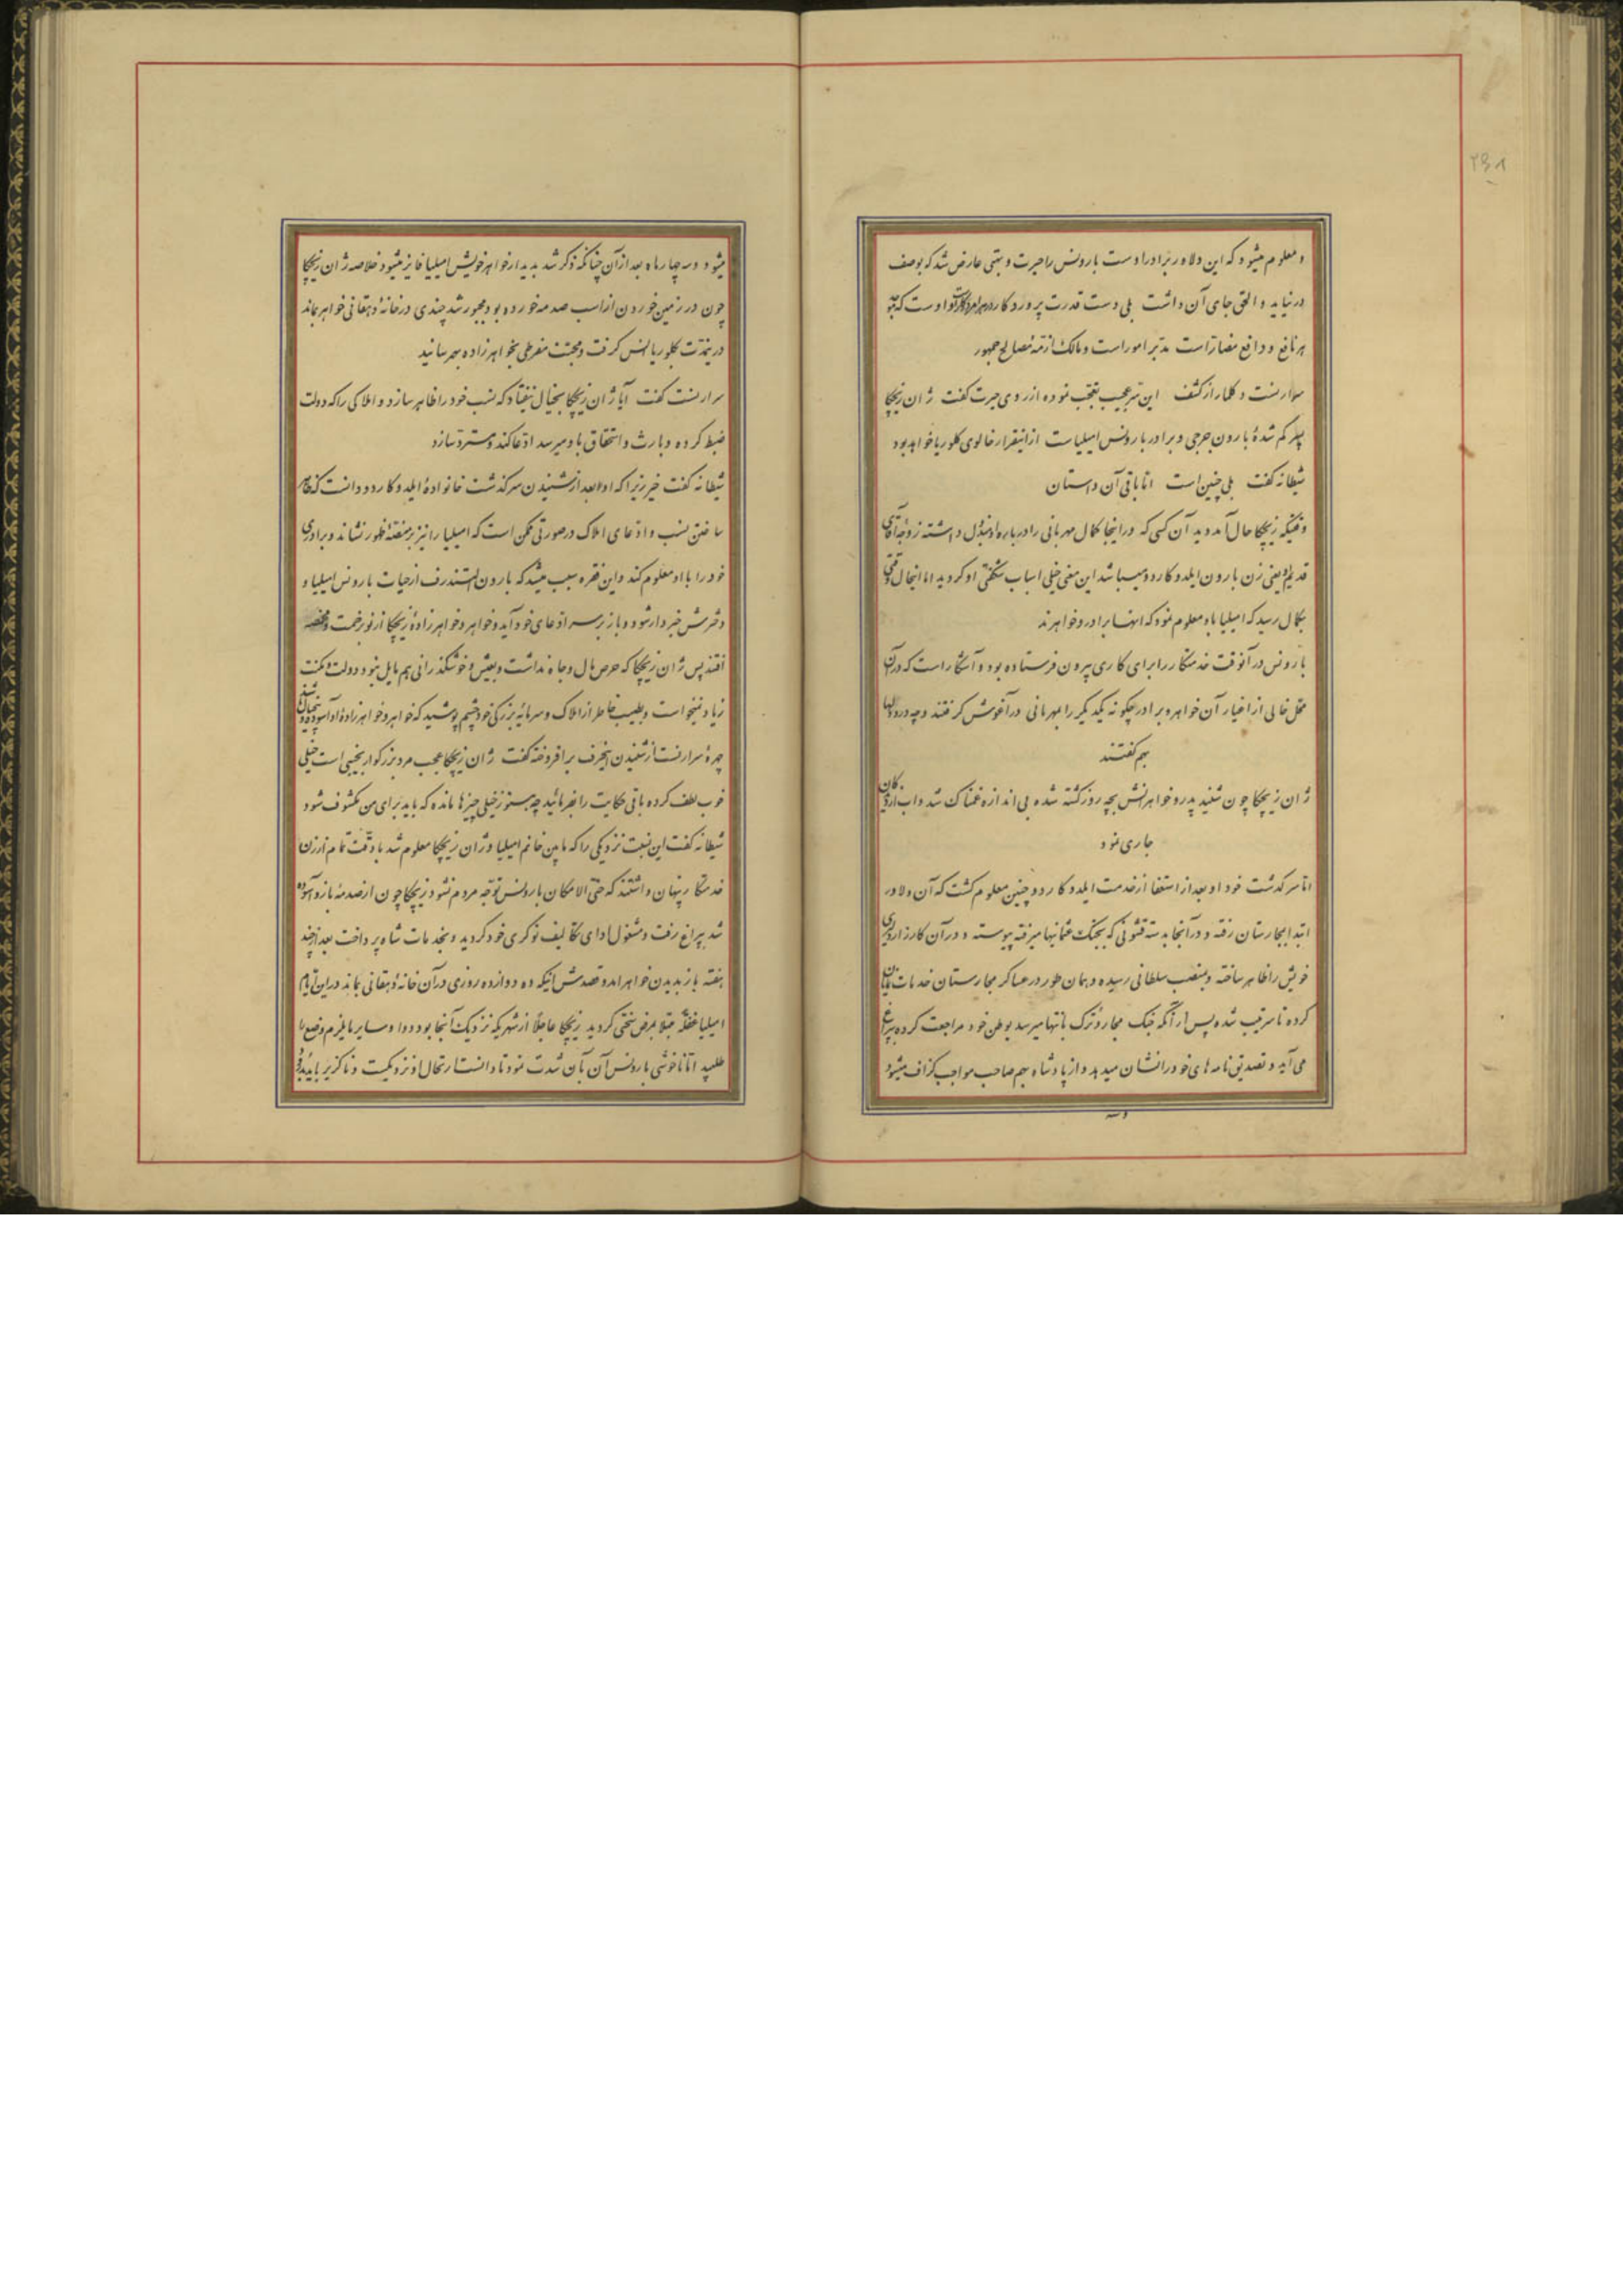 ۲۹۸
و معلوم میشود که این دلاور برادر اوست بارونس را حیرت و بهتی عارض شد که بوصف
در نیاید و الحق جای آن داشت بلی دست قدرت پروردکار در هر امر کار اوست که
هر نافع و دافع مضار است مدبر امور است و مالک ازمّه مصالح جمهور
سرارنست و کلمار از کشف این سر عجیب تعجب نموده از روی حیرت کفت ژان زیچکا
پسر کم شدهٔ بارون جرجی و برادر بارونس امیلیاست از اینقرار خالوی کلوریا خواهد بود
شیطانه کفت بلی چنین است اما باقی آن داستان
وقتیکه زیچکا بحال آمد دید آن کسی که در اینجا کمال مهربانی را درباره او مبذول داشته زوجه آقای
قدیم او یعنی زن بارون ایلدوکاردو میباشد این معنی خیلی اسباب شکفتی او کردید اما اینحال وقتی
بکمال رسید که امیلیا باو معلوم نمود که اینها برادر و خواهرند
بارونس در آنوقت خدمتکار را برای کاری بیرون فرستاده بود و آشکار است که در آن
محل خالی از اغیار آن خواهر و برادر چکونه یکدیکر را بمهربانی در آغوش کرفتند و چه درد دلها
بهم کفتند
ژان زیچکا چون شنید پدر و خواهرانش بچه روز کشته شده بی اندازه غمناک شد و آب از دیدکان
جاری نمود
اما سرکذشت خود او بعد از استعفا از خدمت ایلدوکاردو چنین معلوم کشت که آن دلاور
ابتدا بمجارستان رفته و در آنجا بدسته قشونی که بجنک عثمانیها میرفته پیوسته و در آن کارزار دلیری
خویش را ظاهر ساخته و بمنصب سلطانی رسیده و بهمان طور در عساکر مجارستان خدمات نمایان
کرده تا سرتیب شده پس از آنکه جنک مجار و ترک بانتها میرسد بوطن خود مراجعت کرده پراغ
می آید و تصدیق نامه های خود را نشان میدهد و از پادشاه بهم صاحب مواجب کزاف میشود
و سه
میشود و سه چهار ماه بعد از آن چنانکه ذکر شد بدیدار خواهر خویش امیلیا فایز میشود خلاصه ژان زیچکا
چون در زمین خوردن از اسب صدمه خورده بود مجبور شد چندی در خانهٔ دهقانی خواهر بماند
در اینمدت بکلوریا انس کرفت و محبت مفرطی بخواهرزاده بهمرسانید
سرارنست کفت آیا ژان زیچکا بخیال نیفتاد که نسب خود را ظاهر سازد و املاکی را که دولت
ضبط کرده و بارث و استحقاق باو میرسد ادعا کند و مسترد سازد
شیطانه کفت خیر زیرا که اولا بعد از شنیدن سرکذشت خانوادهٔ ایلدوکاردو دانست که ظاهر
ساختن نسب و ادعای املاک در صورتی ممکن است که امیلیا را نیز بر منصّهٔ ظهور نشاند و برادری
خود را با او معلوم کند و این فقره سبب میشد که بارون المتندرف از حیات بارونس امیلیا و
دخترش خبردار شود و باز بر سر ادعای خود آید و خواهر و خواهرزادهٔ زیچکا از نو بزحمت و مخمصه
افتند پس ژان زیچکا که حرص مال و جاه نداشت و بعیش و خوشکذرانی هم مایل نبود و دولت و مکنت
زیاد نمیخواست و بطیب خاطر از املاک و سرمایه بزرکی خود چشم پوشید که خواهر و خواهرزادهٔ او آسوده
چهرهٔ سرارنست از شنیدن اینحرف برافروخته کفت ژان زیچکا عجب مرد بزرکوار نجیبی است خیلی
خوب لطف کرده باقی حکایت را بفرمائید چه هنوز خیلی چیزها مانده که باید برای من مکشوف شود
شیطانه کفت این نسبت نزدیکی را که مابین خانم امیلیا و ژان زیچکا معلوم شد با دقت تمام از زن
خدمتکار پنهان داشتند که حتی الامکان بارونس توجه مردم نشود زیچکا چون از صدمه بازو آسوده
شد پراغ رفت و مشغول ادای تکالیف نوکری خود کردید و بخدمات شاه پرداخت بعد از چند
هفته باز بدیدن خواهر آمد و قصدش اینکه ده دوازده روزی در آن خانهٔ دهقانی بماند در این ایام
امیلیا غفلةً مبتلا بمرض سختی کردید زیچکا عاجلاً از شهریکه نزدیک آنجا بود دوا و سایر مایلزم وضع را
طلبید اما ناخوشی بارونس آن بآن شدت نمود تا دانست ارتحال او نزدیکست و ناکزیر باید